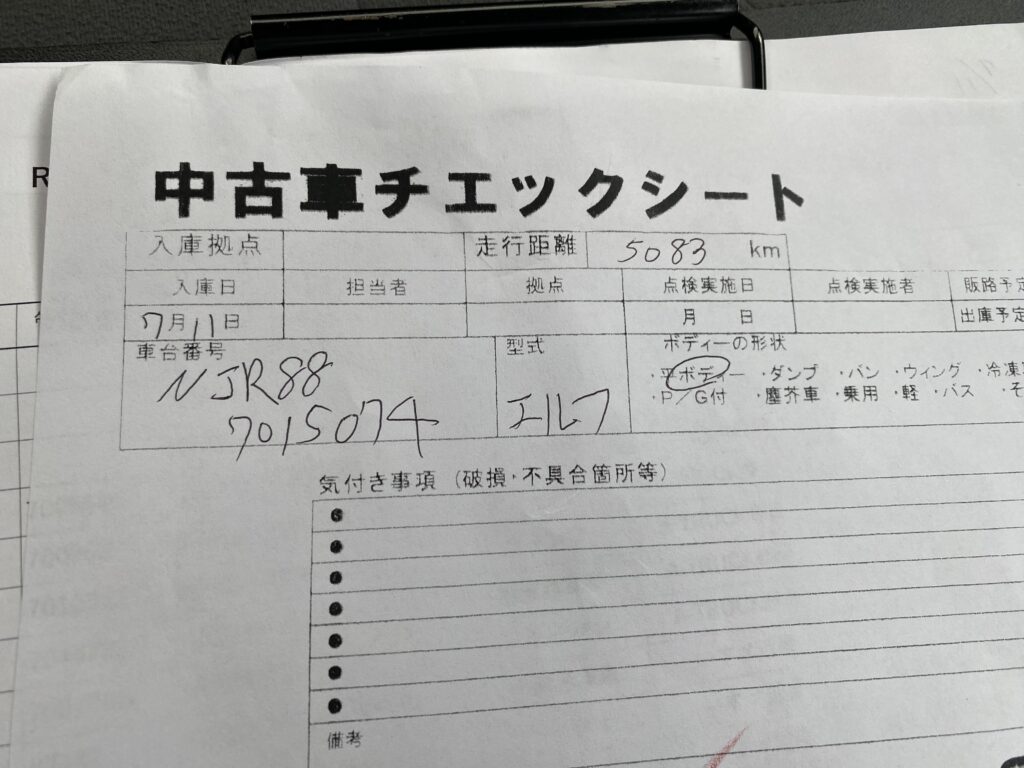 中古車チエックシート
入庫拠点 走行距離 5083 km
入庫日 担当者 拠点 点検実施日 点検実施者 販路予定
7月11日 月 日 出庫予定
車台番号 型式 ボディーの形状
NJR88 エルフ ・平ボディー ・ダンプ ・バン ・ウィング ・冷凍
7015074 ・P/G付 ・塵芥車 ・乗用 ・軽 ・バス ・そ
気付き事項（破損・不具合箇所等）
備考